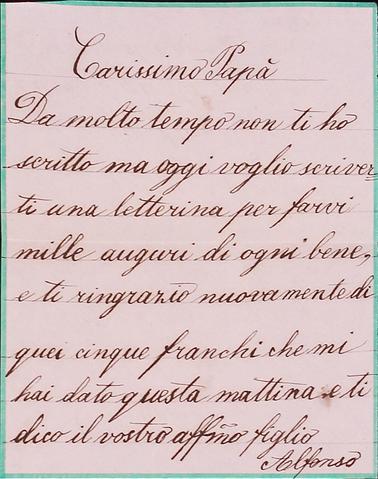 Carissimo Papà
Da molto tempo non ti ho
scritto ma oggi voglio scriver=
ti una letterina per farvi
mille auguri di ogni bene,
e ti ringrazio nuovamente di
quei cinque franchi che mi
hai dato questa mattina e ti
dico il vostro affmo figlio
Alfonso